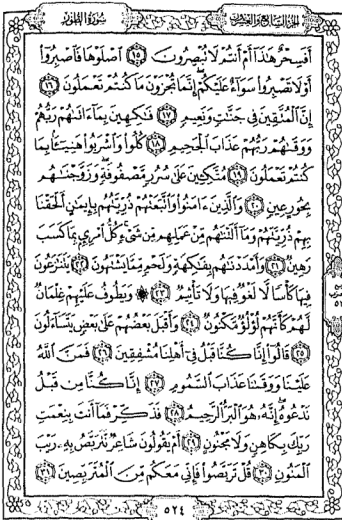 سُورَةُ الطُّورِ
الجزء السابع والعشرون
أَفَسِحْرٌ هَٰذَآ أَمْ أَنتُمْ لَا تُبْصِرُونَ ١٥ ٱصْلَوْهَا فَٱصْبِرُوٓا۟
أَوْ لَا تَصْبِرُوا۟ سَوَآءٌ عَلَيْكُمْ إِنَّمَا تُجْزَوْنَ مَا كُنتُمْ تَعْمَلُونَ ١٦
إِنَّ ٱلْمُتَّقِينَ فِى جَنَّٰتٍ وَنَعِيمٍ ١٧ فَٰكِهِينَ بِمَآ ءَاتَىٰهُمْ رَبُّهُمْ
وَوَقَىٰهُمْ رَبُّهُمْ عَذَابَ ٱلْجَحِيمِ ١٨ كُلُوا۟ وَٱشْرَبُوا۟ هَنِيٓـًٔۢا بِمَا
كُنتُمْ تَعْمَلُونَ ١٩ مُتَّكِـِٔينَ عَلَىٰ سُرُرٍ مَّصْفُوفَةٍ وَزَوَّجْنَٰهُم
بِحُورٍ عِينٍ ٢٠ وَٱلَّذِينَ ءَامَنُوا۟ وَٱتَّبَعَتْهُمْ ذُرِّيَّتُهُم بِإِيمَٰنٍ أَلْحَقْنَا
بِهِمْ ذُرِّيَّتَهُمْ وَمَآ أَلَتْنَٰهُم مِّنْ عَمَلِهِم مِّن شَىْءٍ كُلُّ ٱمْرِئٍۭ بِمَا كَسَبَ
رَهِينٌ ٢١ وَأَمْدَدْنَٰهُم بِفَٰكِهَةٍ وَلَحْمٍ مِّمَّا يَشْتَهُونَ ٢٢ يَتَنَٰزَعُونَ
فِيهَا كَأْسًا لَّا لَغْوٌ فِيهَا وَلَا تَأْثِيمٌ ٢٣ ۞ وَيَطُوفُ عَلَيْهِمْ غِلْمَانٌ
لَّهُمْ كَأَنَّهُمْ لُؤْلُؤٌ مَّكْنُونٌ ٢٤ وَأَقْبَلَ بَعْضُهُمْ عَلَىٰ بَعْضٍ يَتَسَآءَلُونَ
٢٥ قَالُوٓا۟ إِنَّا كُنَّا قَبْلُ فِىٓ أَهْلِنَا مُشْفِقِينَ ٢٦ فَمَنَّ ٱللَّهُ
عَلَيْنَا وَوَقَىٰنَا عَذَابَ ٱلسَّمُومِ ٢٧ إِنَّا كُنَّا مِن قَبْلُ
نَدْعُوهُ إِنَّهُۥ هُوَ ٱلْبَرُّ ٱلرَّحِيمُ ٢٨ فَذَكِّرْ فَمَآ أَنتَ بِنِعْمَتِ
رَبِّكَ بِكَاهِنٍ وَلَا مَجْنُونٍ ٢٩ أَمْ يَقُولُونَ شَاعِرٌ نَّتَرَبَّصُ بِهِۦ رَيْبَ
ٱلْمَنُونِ ٣٠ قُلْ تَرَبَّصُوا۟ فَإِنِّى مَعَكُم مِّنَ ٱلْمُتَرَبِّصِينَ ٣١
٥٢٤